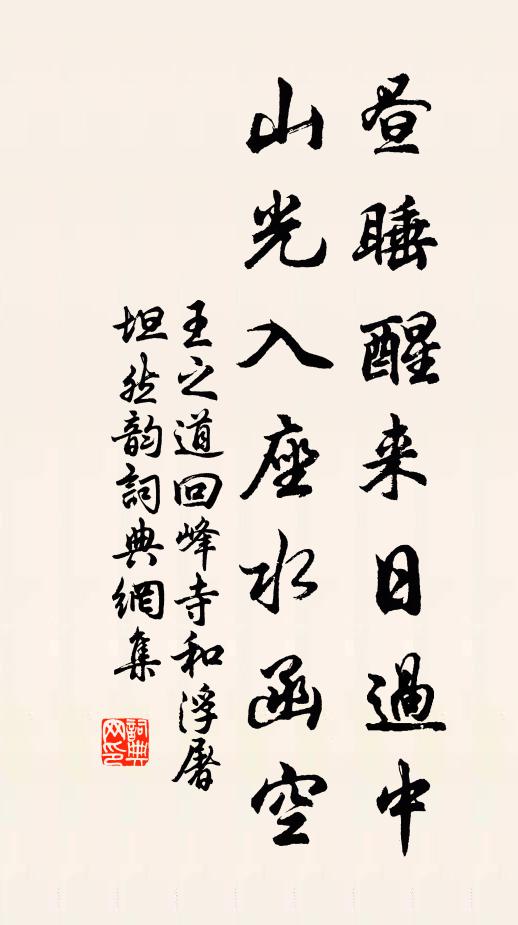 昼睡醒来日過中
山光入座水函空
王之道回峰寺和浮屠
坦然韵詞典網集
詞典網印